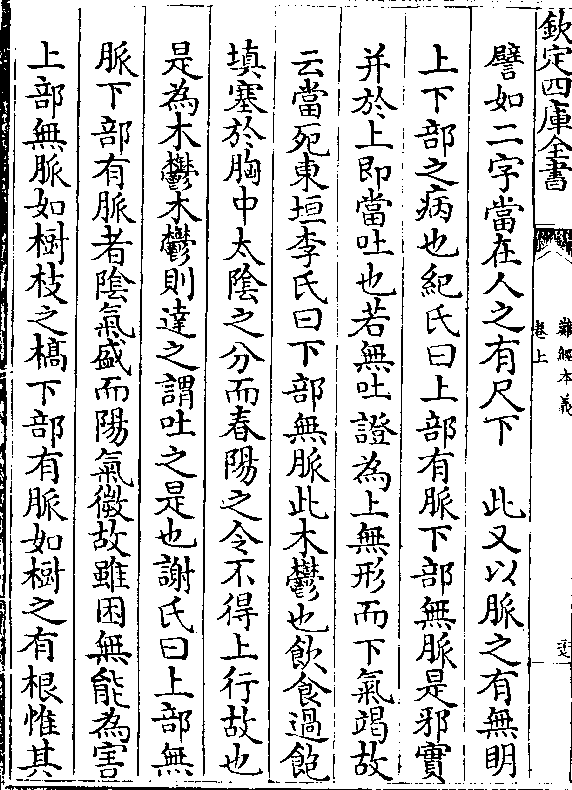 欽定四庫全書
難經本義
卷上
譬如二字當在人之有尺下　此又以脈之有無明
上下部之病也紀氏曰上部有脈下部無脈是邪實
并於上即當吐也若無吐證為上無形而下氣竭故
云當死東垣李氏曰下部無脈此木鬱也飲食過飽
填塞於胸中太陰之分而春陽之令不得上行故也
是為木鬱木鬱則達之謂吐之是也謝氏曰上部無
脈下部有脈者陰氣盛而陽氣微故雖困無能為害
上部無脈如樹枝之槁下部有脈如樹之有根惟其